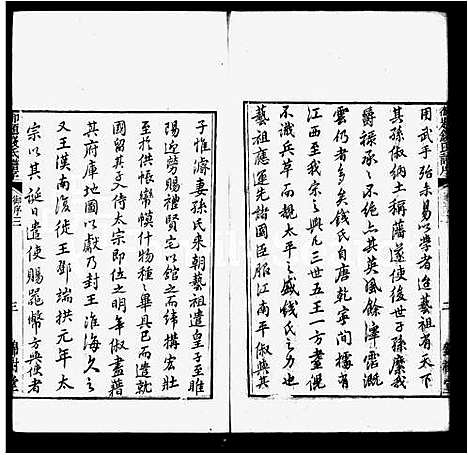 用武乎殆未易以學者迨藝祖有天下
其孫俶納土稱藩遂使後世子孫縻我
爵祿承承不絶其英風餘澤霑溉
雲仍者多矣錢氏自唐乾寧間據有
江西至我宗之興凡三世五王一方耋倪
不識兵革而覩太平之盛錢氏之力也
藝祖應運先諸國臣服江南平俶與其
子惟濬妻孫氏來朝藝祖遣皇子至睢
陽迎勞賜禮賢宅以館之而締構宏壯
至於供帳帟幙什物種種畢具已而遣就
國留其子入侍太宗即位之明年俶盡籍
其府庫地圖以獻乃封王淮海久之
又王漢南復徙王鄧端拱元年太
宗以其誕日遣使賜器幣方與使者
御序三
三
錦樹堂